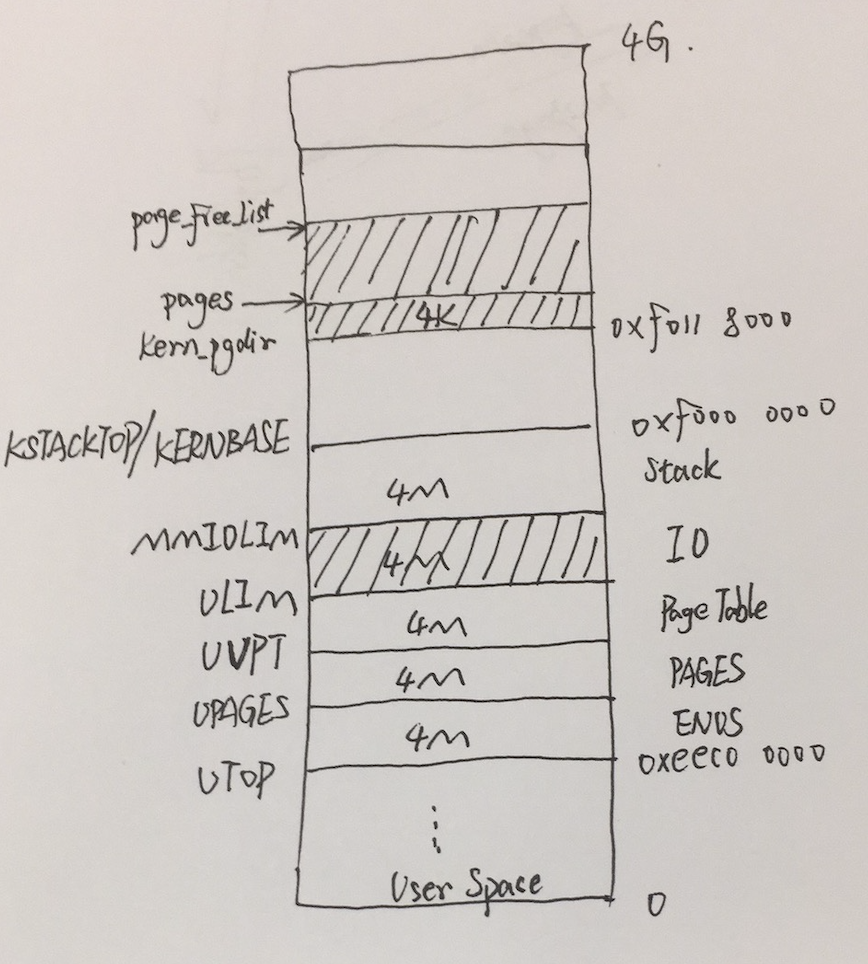 4G.
page_free_list
pages
4K
0xf011 8000
kern_pgdir
0xf000 0000
KSTACKTOP/KERNBASE
Stack
4M
MMIOLIM
4M
IO
ULIM
4M
Page Table
UVPT
4M
PAGES
UPAGES
4M
ENVS
0xeec0 0000
UTOP
User Space
0